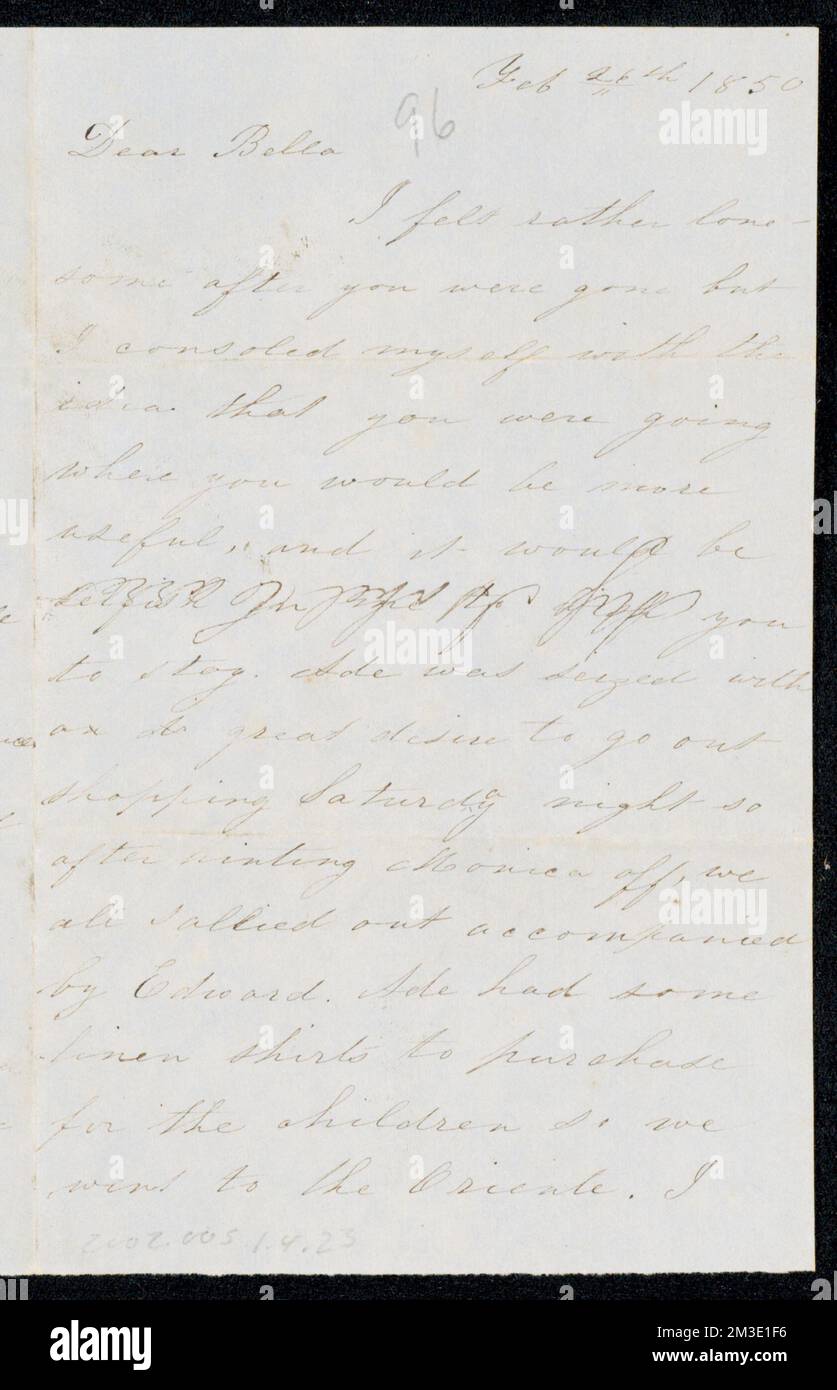 Feb 26th 1850
96
Dear Bella
I felt rather lone-
some after you were gone but
I consoled myself with the
idea that you were going
where you would be more
useful, and it would be
selfish in me to you
to stay. Ade was seized with
a great desire to go out
shopping Saturday night so
after Monica off, we
all sallied out accompanied
by Edward. Ade had some
linen shirts to purchase
for the children so we
went to the Oriente. I
2002.005.1.4.23
alamy
Image ID: 2M3E1F6
www.alamy.com